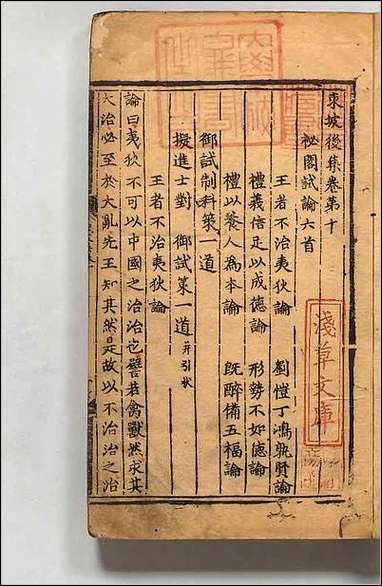 東坡後集卷第十
祕閣試論六首
王者不治夷狄論　劉愷丁鴻孰賢論
禮義信足以成德論　形勢不如德論
禮以養人為本論　既醉備五福論
御試制科策一道
擬進士對　御試策一道并引狀
王者不治夷狄論
論曰夷狄不可以中國之治治也譬若禽獸然求其
大治必至於大亂先王知其然是故以不治治之治
淺草文庫